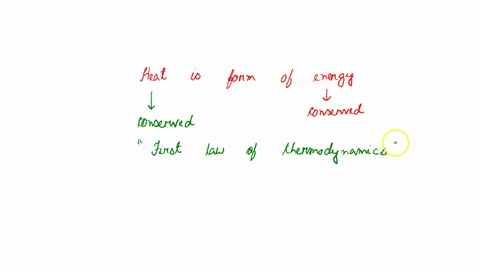 Heat is form of energy
↓ ↓
conserved conserved
" First law of thermodynamics "